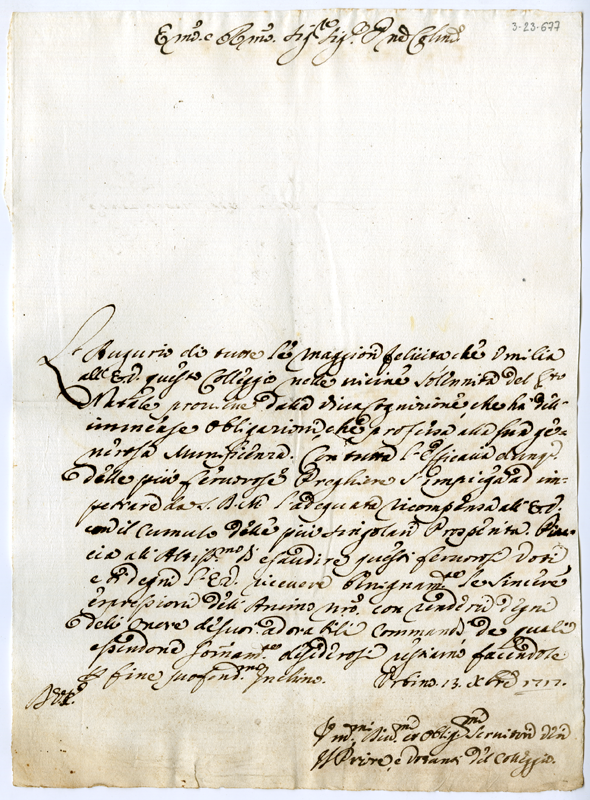 3-23-677
Em̃o. e Rm̃o. Sig.re Sig.r P̃ne Col.mo
L'Augurio di tutte le maggiori felicità che umilia
all'E.V. questo Colleggio nelle vicine Solennità del S.to
Natale proviene dalla dicognizione che ha dell'
immense obligazioni, che professa alla sua gen-
erosa Munificenza. Con tutta l'efficacia
delle più fervorose Preghiere s'impiega ad im-
petrare da S.D.M. l'adeguata ricompensa all'E.V.
con il cumulo delle più singolari Prosperità. Piac-
cia all'Altiss.mo di esaudire questi fervorosi voti
e si degni l'E.V. ricevere benignam.te le sincere
espressioni dell'Animo nr̃o. con renderci degni
dell'onore de suoi adorabili commandi de quali
essendone som̃am.te desiderosi restiamo facendole
p fine profond.mo Inchino. Urbino 13. Xbre 1717.
D.V.E.
Um.mi Div.mi et Oblig.mi Servitori veri
Il Priore, e Dottori del Colleggio.